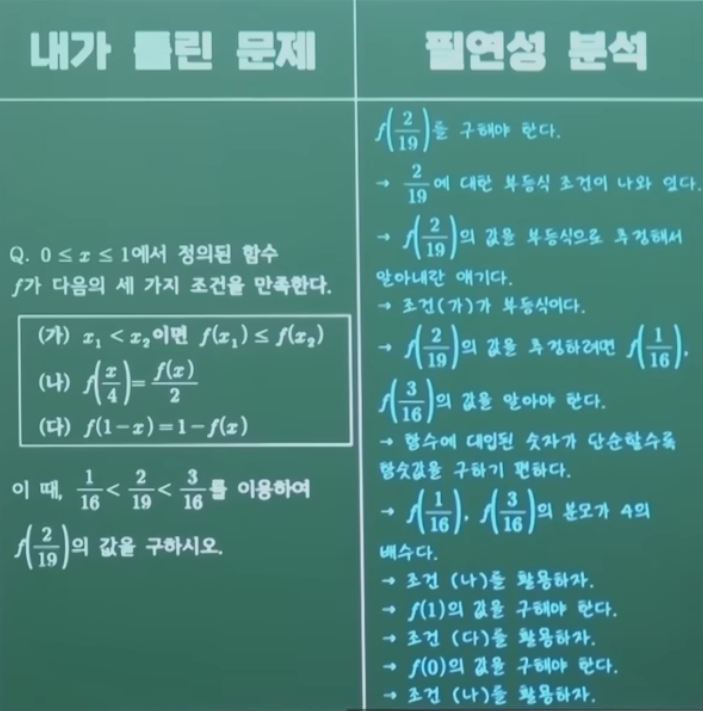 내가 틀린 문제
Q. 0 ≤ x ≤ 1에서 정의된 함수
f가 다음의 세 가지 조건을 만족한다.
(가) x₁ < x₂이면 f(x₁) ≤ f(x₂)
(나) f(x/4) = f(x)/2
(다) f(1-x) = 1-f(x)
이 때, 1/16 < 2/19 < 3/16를 이용하여
f(2/19)의 값을 구하시오.
필연성 분석
f(2/19)를 구해야 한다.
→ 2/19에 대한 부등식 조건이 나와 있다.
→ f(2/19)의 값을 부등식으로 추정해서
알아내란 얘기다.
→ 조건(가)가 부등식이다.
→ f(2/19)의 값을 추정하려면 f(1/16),
f(3/16)의 값을 알아야 한다.
→ 함수에 대입된 숫자가 단순할수록
함숫값을 구하기 편하다.
→ f(1/16), f(3/16)의 분모가 4의
배수다.
→ 조건 (나)를 활용하자.
→ f(1)의 값을 구해야 한다.
→ 조건 (다)를 활용하자.
→ f(0)의 값을 구해야 한다.
→ 조건 (나)를 활용하자.